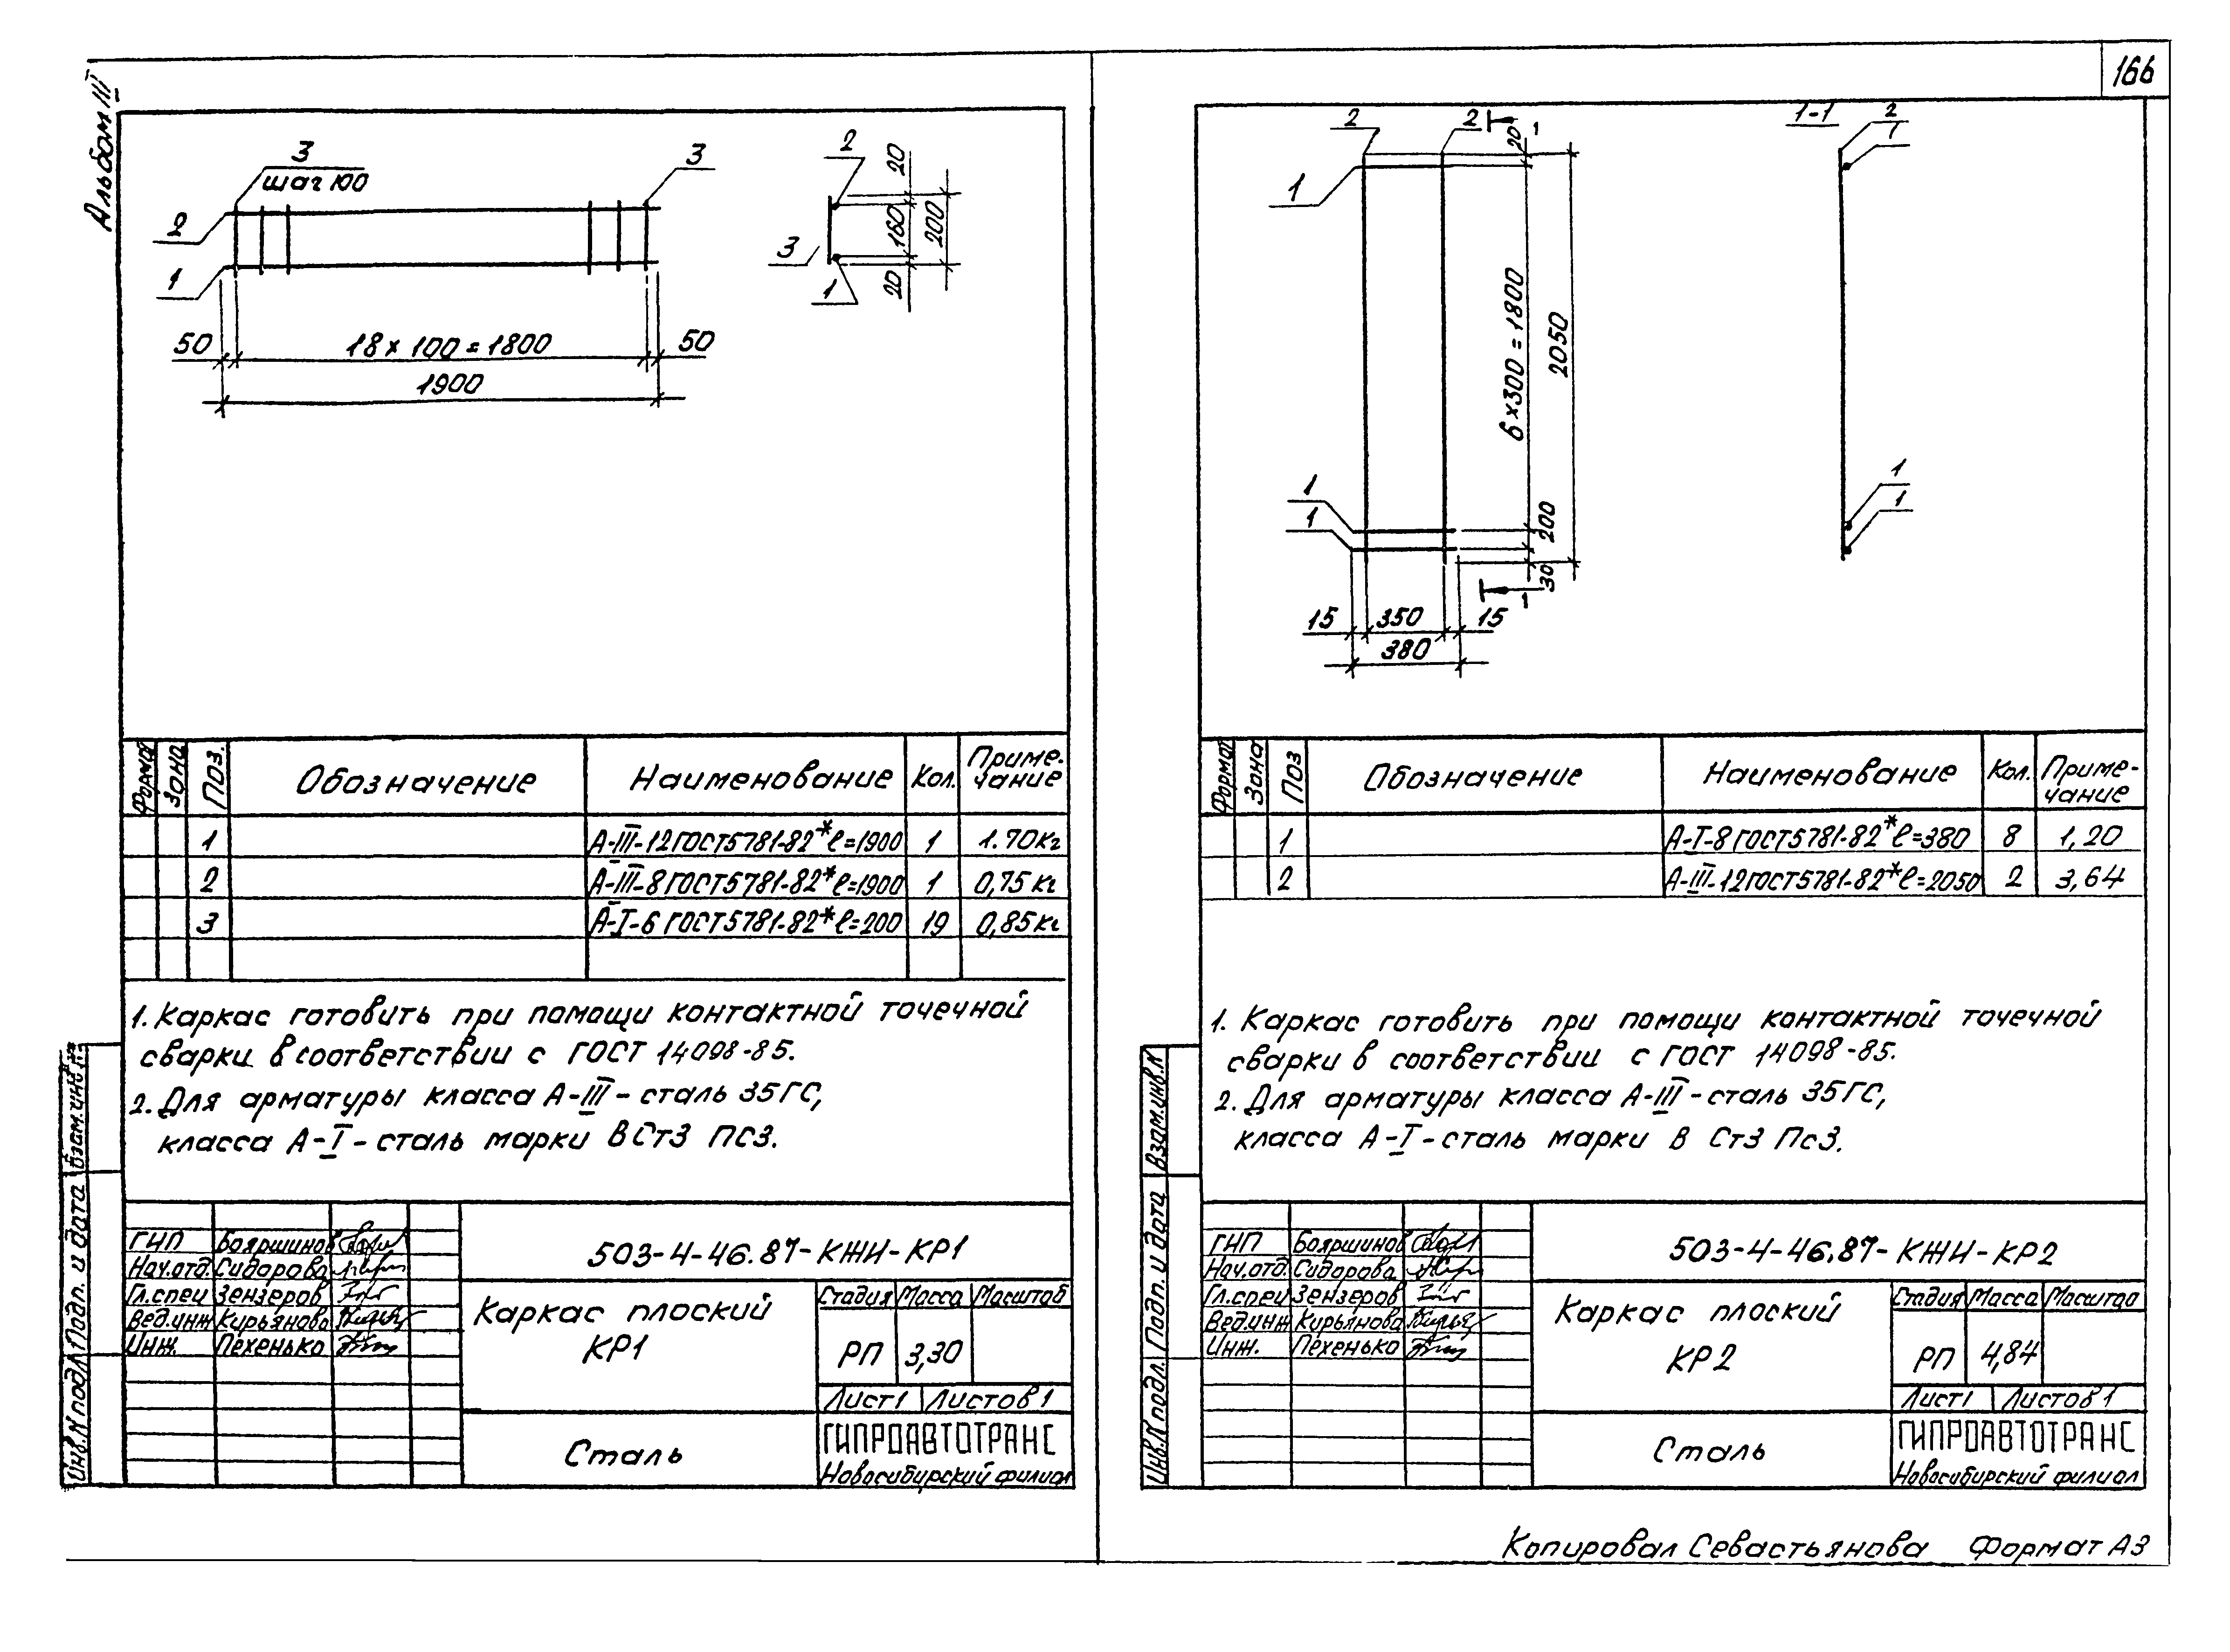 166
Альбом III
3
шаг 100
3
2
1
50
18 х 100 = 1800
50
1900
2
3
1
20
160
200
20
Формат
Зона
Поз.
Обозначение
Наименование
Кол.
Приме-
чание
1 А-III-12 ГОСТ 5781-82* ℓ=1900 1 1.70кг
2 А-III-8 ГОСТ 5781-82* ℓ=1900 1 0,75 кг
3 А-I-6 ГОСТ 5781-82* ℓ=200 19 0,85 кг
1. Каркас готовить при помощи контактной точечной
сварки в соответствии с ГОСТ 14098-85.
2. Для арматуры класса А-III - сталь 35ГС,
класса А-I - сталь марки ВСт3 Пс3.
ГИП Бояршинов
Нач.отд. Сидорова
Гл.спец Зензеров
Вед.инж Кирьянова
Инж. Пехенько
503-4-46.87-КЖИ-КР1
Каркас плоский
КР1
Стадия Масса Масштаб
РП 3,30
Лист 1 Листов 1
Сталь
ГИПРОАВТОТРАНС
Новосибирский филиал
Инв.N подл.
Подп. и дата
Взам.инв.N
2
2
1
1
1
1
1
20
6 х 300 = 1800
2050
200
30
15
350
15
380
1-1
2
1
1
1
Формат
Зона
Поз
Обозначение
Наименование
Кол.
Приме-
чание
1 А-I-8 ГОСТ 5781-82* ℓ=380 8 1,20
2 А-III-12 ГОСТ 5781-82* ℓ=2050 2 3,64
1. Каркас готовить при помощи контактной точечной
сварки в соответствии с ГОСТ 14098-85.
2. Для арматуры класса А-III - сталь 35ГС,
класса А-I - сталь марки В Ст3 Пс3.
ГИП Бояршинов
Нач.отд. Сидорова
Гл.спец Зензеров
Вед.инж Кирьянова
Инж. Пехенько
503-4-46.87-КЖИ-КР2
Каркас плоский
КР2
Стадия Масса Масштаб
РП 4,84
Лист 1 Листов 1
Сталь
ГИПРОАВТОТРАНС
Новосибирский филиал
Инв.N подл.
Подп. и дата
Взам.инв.N
Копировал Севастьянова Формат А3